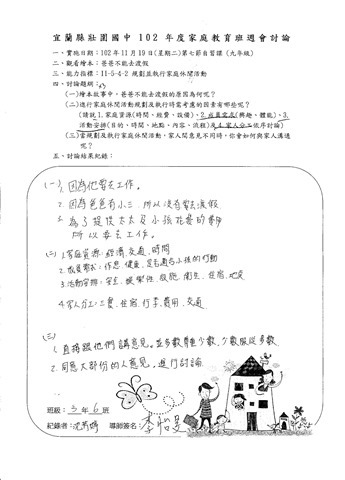 宜蘭縣壯圍國中 102 年度家庭教育班週會討論
一、實施日期：102年11月19日(星期二)第七節自習課(九年級)
二、觀看繪本：爸爸不能去渡假
三、能力指標：11-5-4-2 規劃並執行家庭休閒活動
四、討論題綱：
(一)繪本故事中，爸爸不能去渡假的原因為何呢？
(二)進行家庭休閒活動規劃及執行時需考慮的因素有哪些呢？
(請就 1.家庭資源(時間、經費、設備)、2.成員需求(興趣、體能)、3.
活動安排(目的、時間、地點、內容、流程)及 4.家人分工依序討論)
(三)當規劃及執行家庭休閒活動，家人間意見不同時，你會如何與家人溝通
呢？
五、討論結果紀錄：
(一) 1. 因為他要去工作。
2. 因為爸爸有小三，所以沒有要去渡假
3. 為了提供太太及小孩花費的
所以要去工作。
(二) 1.家庭資源：經濟、交通、時間
2.成員需求：作息、健康、是否適合小孩的行動
3.活動安排：安全、娛樂性、設施、衛生、住宿、地點
4.家人分工：三餐、住宿、行李、費用、交通
(三)
1. 直接跟他們講意見。並多數尊重少數，少數服從多數
2. 同意大部份的人意見，進行討論
班級：3年6班
紀錄者： 導師簽名：